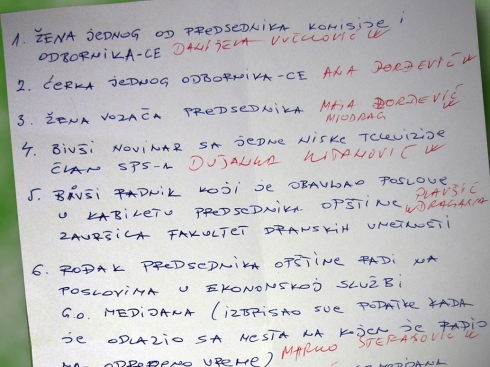 1. ŽENA JEDNOG OD PREDSEDNIKA KOMISIJE I
ODBORNIKA-CE DANIJELA VUČKOVIĆ
2. ĆERKA JEDNOG ODBORNIKA-CE ANA ĐORĐEVIĆ
3. ŽENA VOZAČA PREDSEDNIKA MAJA ĐORĐEVIĆ
MIODRAG
4. BIVŠI NOVINAR SA JEDNE NIŠKE TELEVIZIJE
ČLAN SPS-A DUŠANKA
5. BIVŠI RADNIK KOJI JE OBAVLJAO POSLOVE
U KABINETU PREDSEDNIKA OPŠTINE DRAGANA
ZAVRŠILA FAKULTET DRAMSKIH UMETNOSTI
6. ROĐAK PREDSEDNIKA OPŠTINE RADI NA
POSLOVIMA U EKONOMSKOJ SLUŽBI
G.O. MEDIJANA (IZBRISAO SVE PODATKE KADA
JE ODLAZIO SA MESTA NA KOJEM JE RADIO
NA ODREĐENO VREME) MARKO